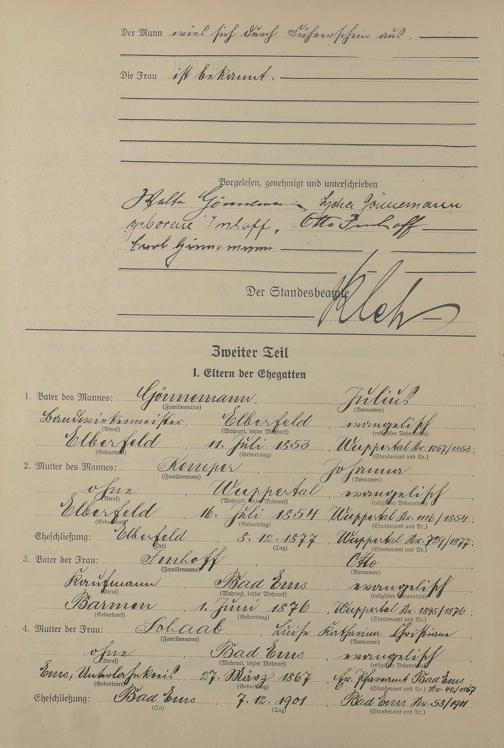 Der Mann wies sich durch Führerschein aus.
Die Frau ist bekannt.
Vorgelesen, genehmigt und unterschrieben
Walter Gönnemann Lydia Gönnemann
geborene Imhoff, Otto Imhoff
Carl Gönnemann
Der Standesbeamte
Zweiter Teil
I. Eltern der Ehegatten
1. Vater des Mannes: Gönnemann Julius
(Familienname) (Vornamen)
Bandwirkermeister Elberfeld evangelisch
(Beruf) (Wohnort, letzter Wohnort) (religiöses Bekenntnis)
Elberfeld 11. Juli 1853 Wuppertal Nr. 1067/1853.
(Geburtsort) (Geburtstag) (Standesamt und Nr.)
2. Mutter des Mannes: Kemper Johanna
(Familienname) (Vornamen)
ohne Wuppertal evangelisch
(Beruf) (Wohnort, letzter Wohnort) (religiöses Bekenntnis)
Elberfeld 16. Juli 1854 Wuppertal Nr. 1116/1854.
(Geburtsort) (Geburtstag) (Standesamt und Nr.)
Eheschließung: Elberfeld 8.12.1877 Wuppertal Nr. 791/1877.
(Ort) (Tag) (Standesamt und Nr.)
3. Vater der Frau: Imhoff Otto
(Familienname) (Vornamen)
Kaufmann Bad Ems evangelisch
(Beruf) (Wohnort, letzter Wohnort) (religiöses Bekenntnis)
Barmen 1. Juni 1876 Wuppertal Nr. 1845/1876
(Geburtsort) (Geburtstag) (Standesamt und Nr.)
4. Mutter der Frau: Schaab Luise Katharina Christiane
(Familienname) (Vornamen)
ohne Bad Ems evangelisch
(Beruf) (Wohnort, letzter Wohnort) (religiöses Bekenntnis)
Ems, Unterlahnkreis 27. März 1867 Ev. Pfarramt Bad Ems
(Geburtsort) (Geburtstag) (Standesamt und Nr.) Nr. 42/1867
Eheschließung: Bad Ems 7.12.1901 Bad Ems Nr. 58/1901
(Ort) (Tag) (Standesamt und Nr.)